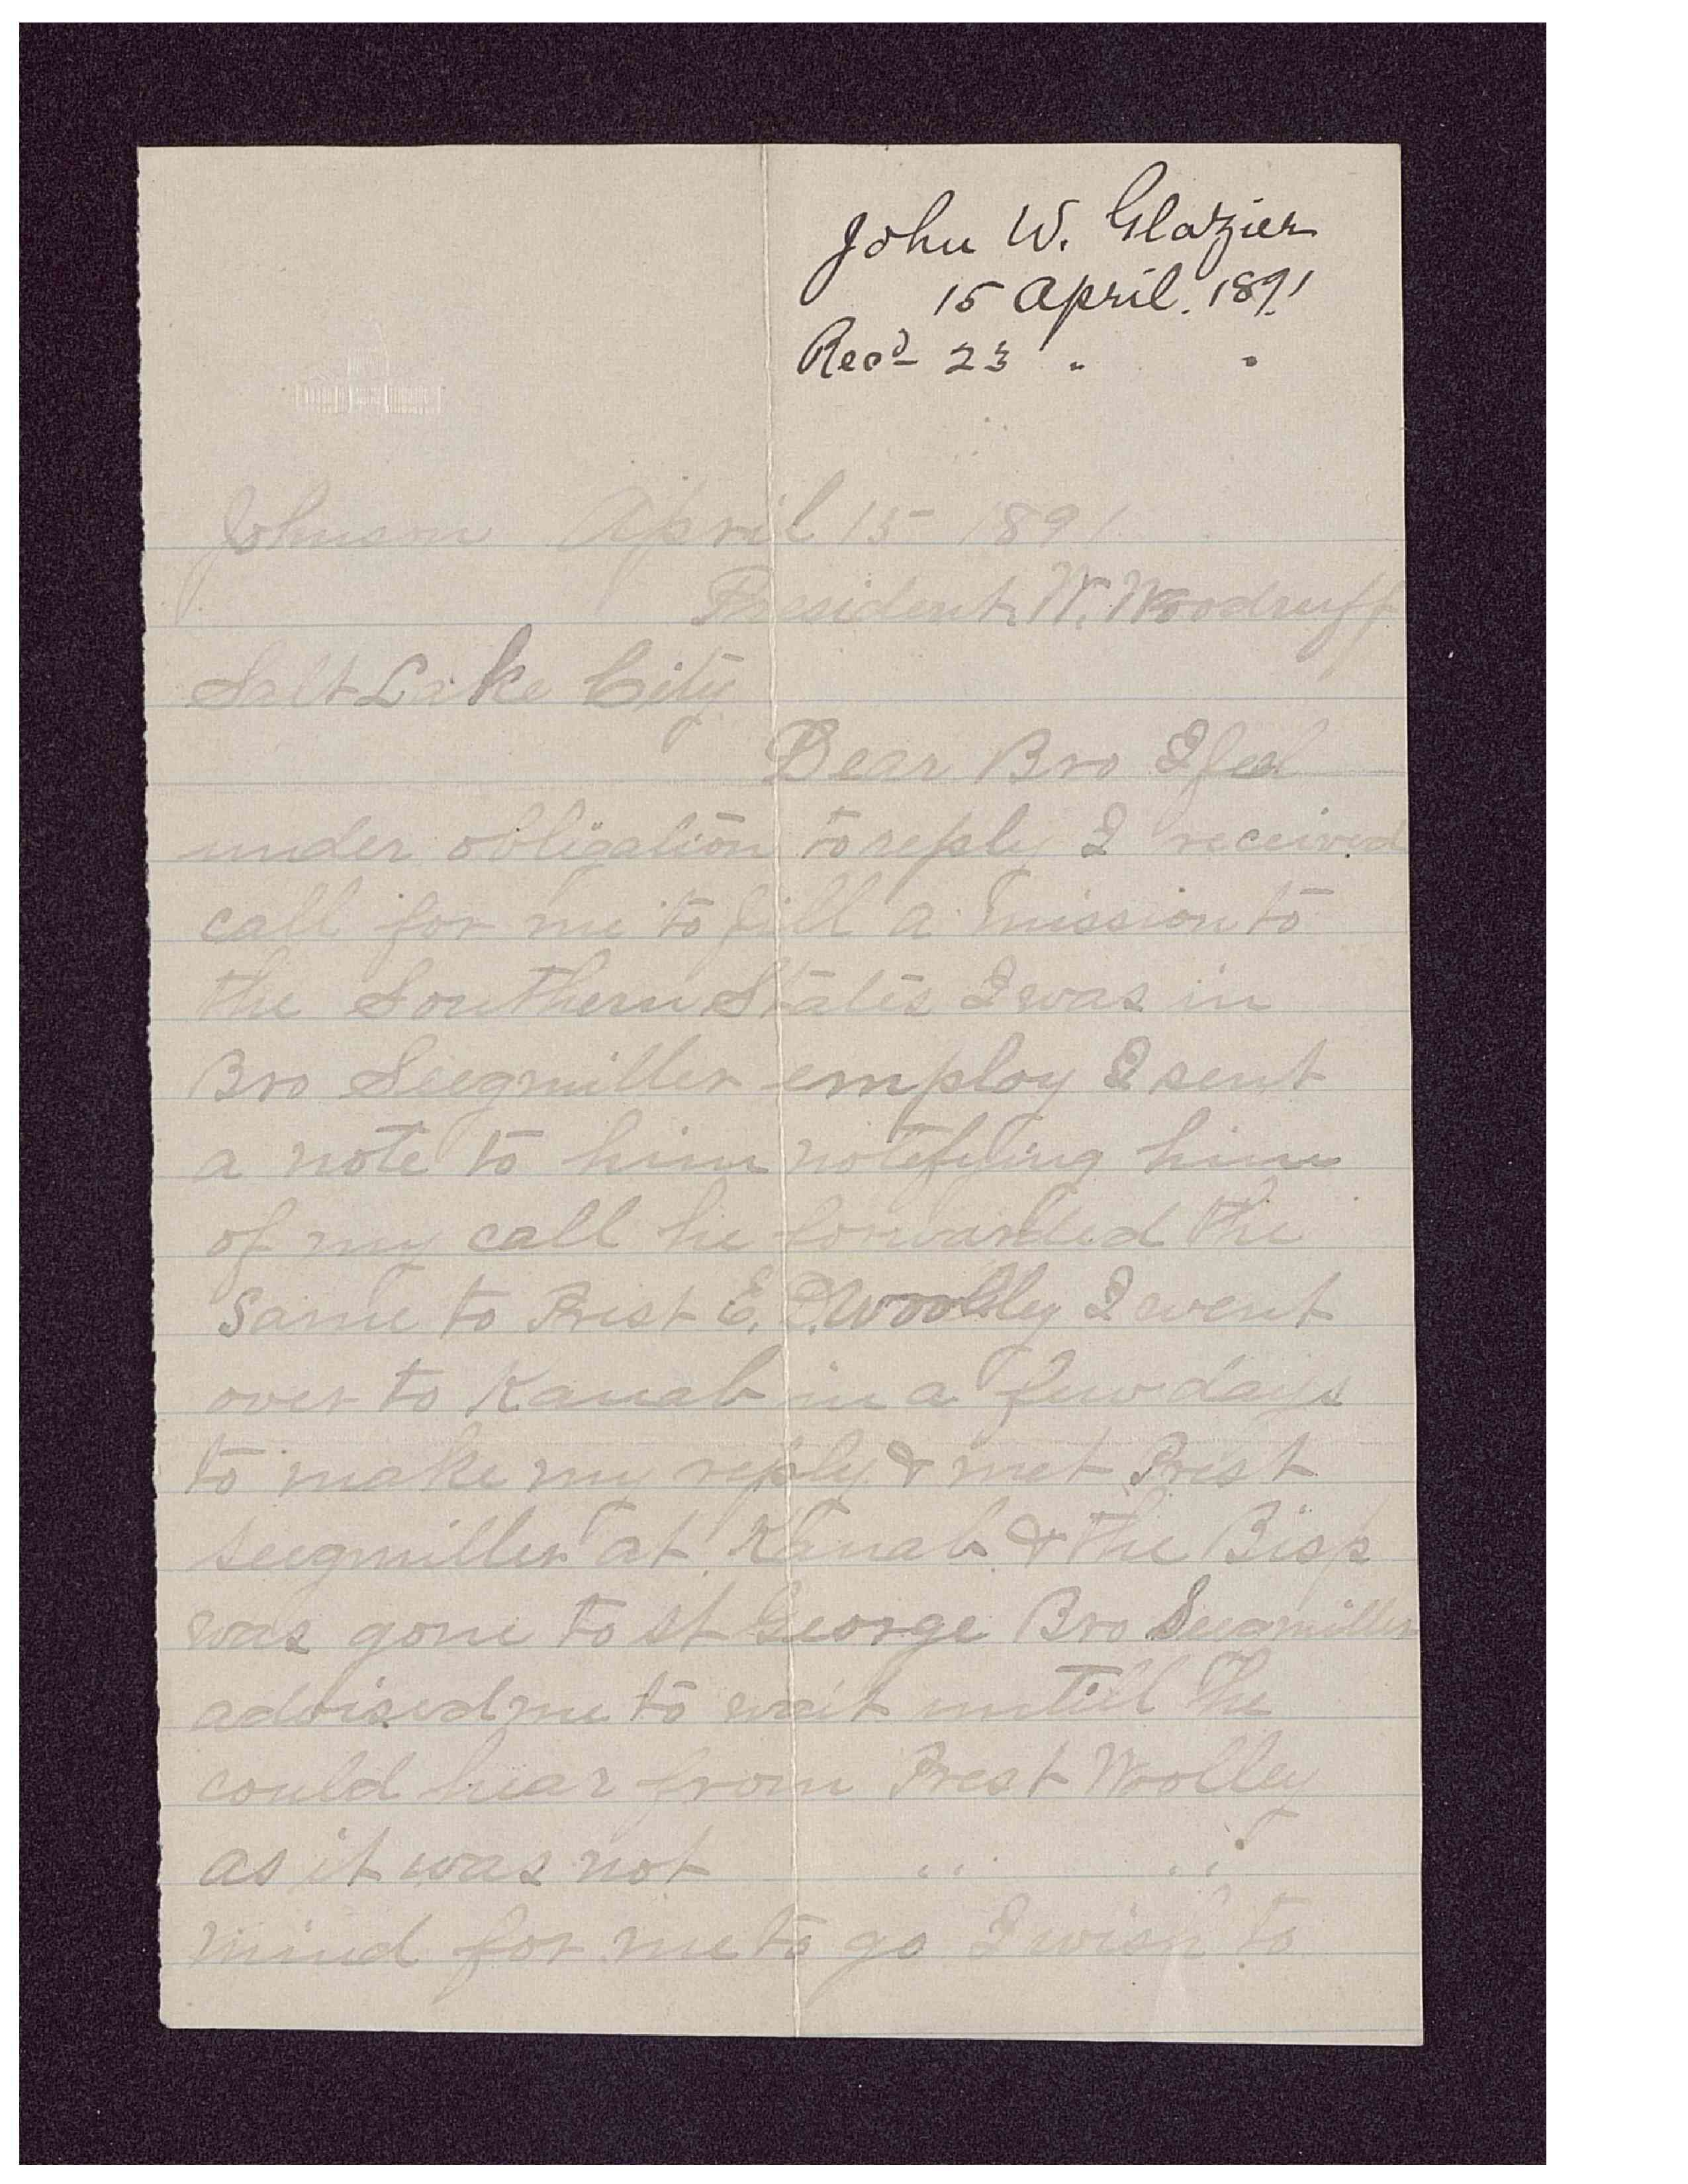 John W. Glazier
15 April. 1891
Recd 23 " "
Johnson April 15 1891
President W. Woodruff
Salt Lake City
Dear Bro I feel
under obligation to reply I received
call for me to fill a mission to
the Southern States I was in
Bro Seegmiller employ I sent
a note to him notefying him
of my call he forwarded the
Same to Prest E. D. Woolley I went
over to Kanab in a few days
to make my reply & met Prest
Seegmiller at Kanab & the Bisp
was gone to st George Bro Seegmiller
advised me to wait untill he
could hear from Prest Woolley
as it was not
mind for me to go I wish to